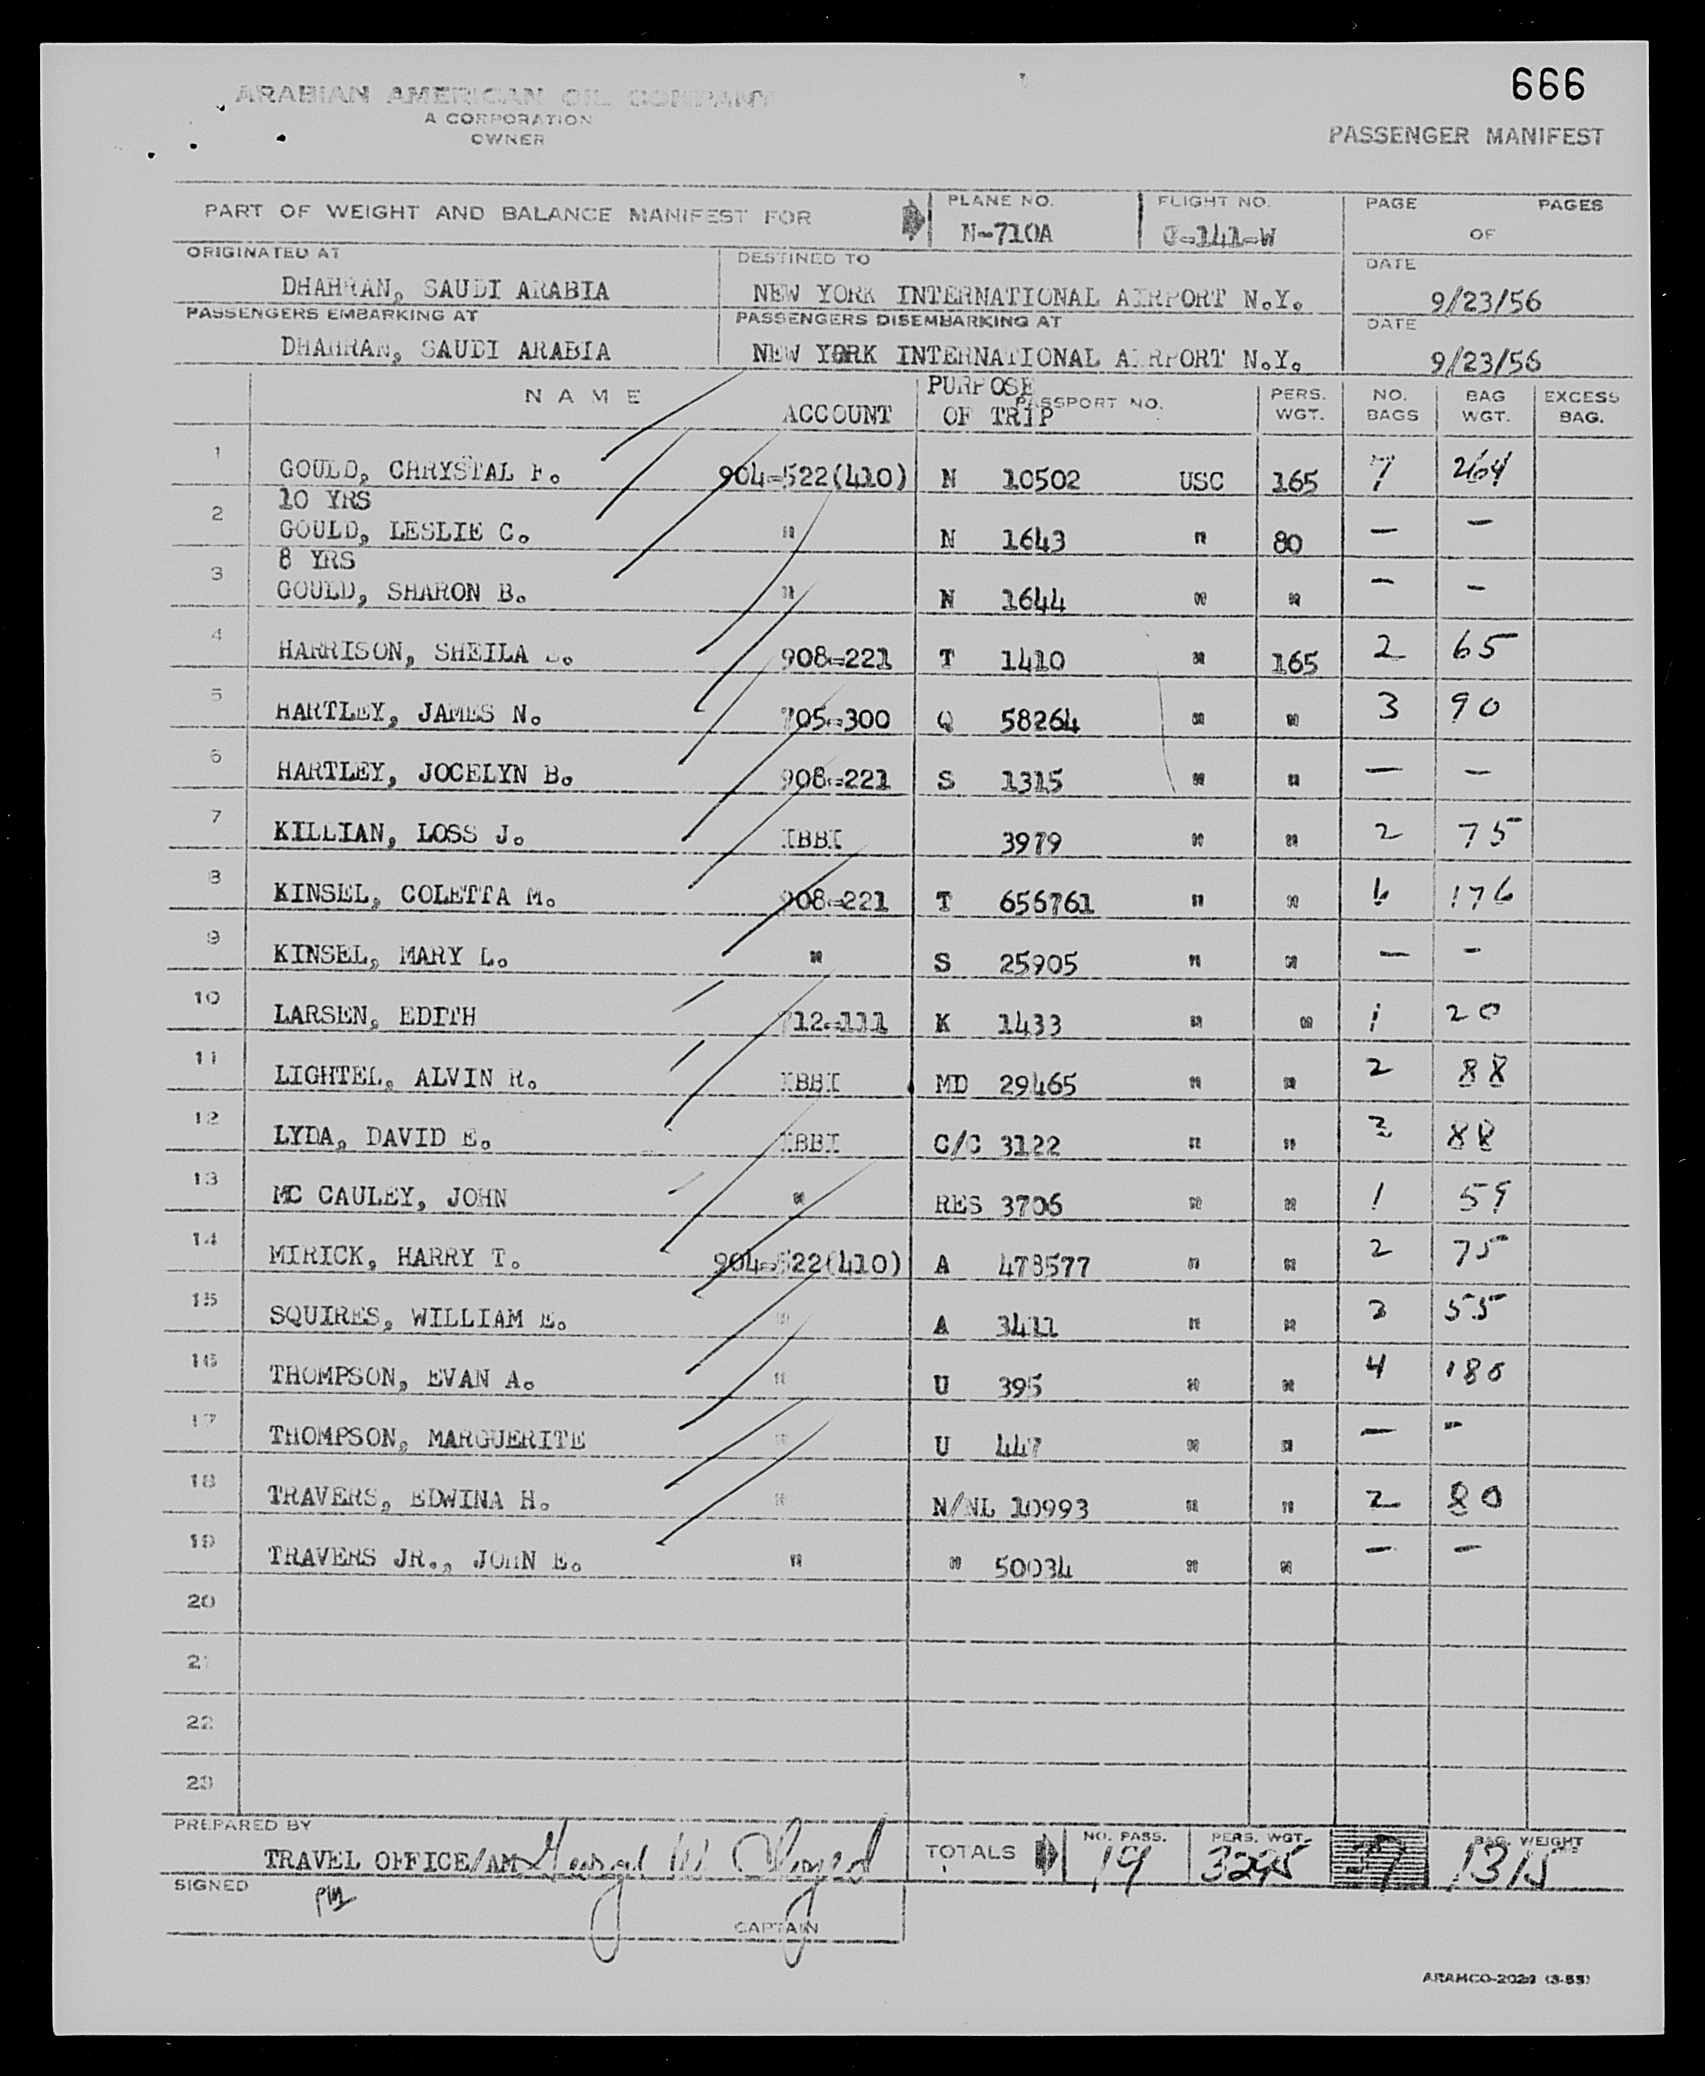 666
ARABIAN AMERICAN OIL COMPANY
A CORPORATION
OWNER
PASSENGER MANIFEST
PART OF WEIGHT AND BALANCE MANIFEST FOR
PLANE NO.
N-710A
FLIGHT NO.
-141-W
PAGE OF PAGES
ORIGINATED AT
DHAHRAN, SAUDI ARABIA
DESTINED TO
NEW YORK INTERNATIONAL AIRPORT N.Y.
DATE
9/23/56
PASSENGERS EMBARKING AT
DHAHRAN, SAUDI ARABIA
PASSENGERS DISEMBARKING AT
NEW YORK INTERNATIONAL AIRPORT N.Y.
DATE
9/23/56
NAME ACCOUNT PURPOSE OF TRIP PASSPORT NO. PERS. WGT. NO. BAGS BAG WGT. EXCESS BAG.
1 GOULD, CHRYSTAL F. 904-522(410) N 10502 USC 165 7 264
10 YRS
2 GOULD, LESLIE C. " N 1643 " 80 — —
8 YRS
3 GOULD, SHARON B. " N 1644 " " — —
4 HARRISON, SHEILA 908-221 T 1410 " 165 2 65
5 HARTLEY, JAMES N. 705-300 Q 58264 " " 3 90
6 HARTLEY, JOCELYN B. 908-221 S 1315 " " — —
7 KILLIAN, LOSS J. IBBI 3979 " " 2 75
8 KINSEL, COLETTA M. 908-221 T 656761 " " 6 176
9 KINSEL, MARY L. " S 25905 " " — —
10 LARSEN, EDITH 712-111 K 1433 " " 1 20
11 LIGHTEL, ALVIN R. IBBI MD 29465 " " 2 88
12 LYDA, DAVID E. IBBI C/C 3122 " " 2 88
13 MC CAULEY, JOHN " RES 3706 " " 1 59
14 MIRICK, HARRY T. 904-522(410) A 478577 " " 2 75
15 SQUIRES, WILLIAM E. " A 3411 " " 3 55
16 THOMPSON, EVAN A. " U 395 " " 4 180
17 THOMPSON, MARGUERITE " U 447 " " — —
18 TRAVERS, EDWINA H. " N/NL 10993 " " 2 80
19 TRAVERS JR., JOHN E. " " 50034 " " — —
20
21
22
23
PREPARED BY
TRAVEL OFFICE/AM
TOTALS
NO. PASS.
19
PERS. WGT.
3295
37
BAG. WEIGHT
1315
SIGNED
CAPTAIN
ARAMCO-2022 (3-55)